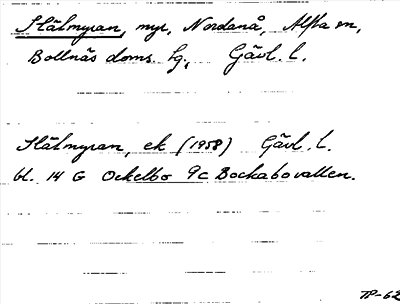 Stålmyran, myr, Nordanå, Alfta sn,
Bollnäs doms. tg., Gävl. l.
Stålmyran, ek (1958) Gävl. l.
bl. 14 G Ockelbo 9c Bockabovallen.
TP-62